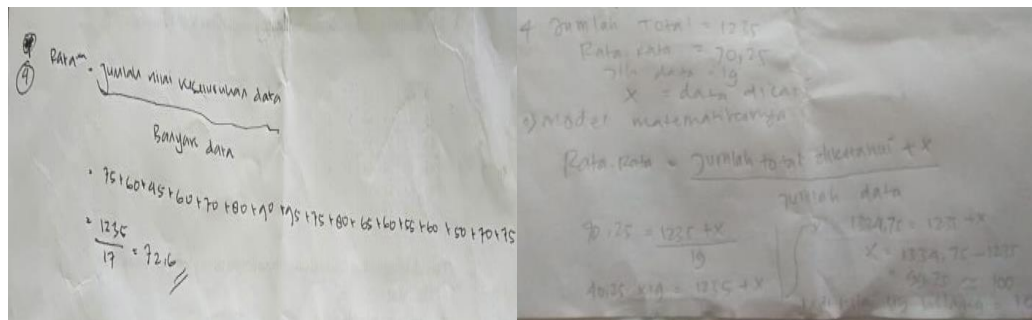 4
Rata" = Jumlah nilai keseluruhan data
Banyak data
= 75+60+95+60+70+80+90+95+75+80+65+60+55+60+50+70+75
= 1235
17
= 72,6
4 Jumlah Total = 1235
Rata-rata = 70,25
Jlh data = 19
X = data dicari
Model matematikanya
Rata-Rata = Jumlah total diketahui + X
Jumlah data
= 1235 + X
19
x 19 = 1235 + X
= 1235 + X
X = 1334,75 - 1235
= 99,75 ≈ 100